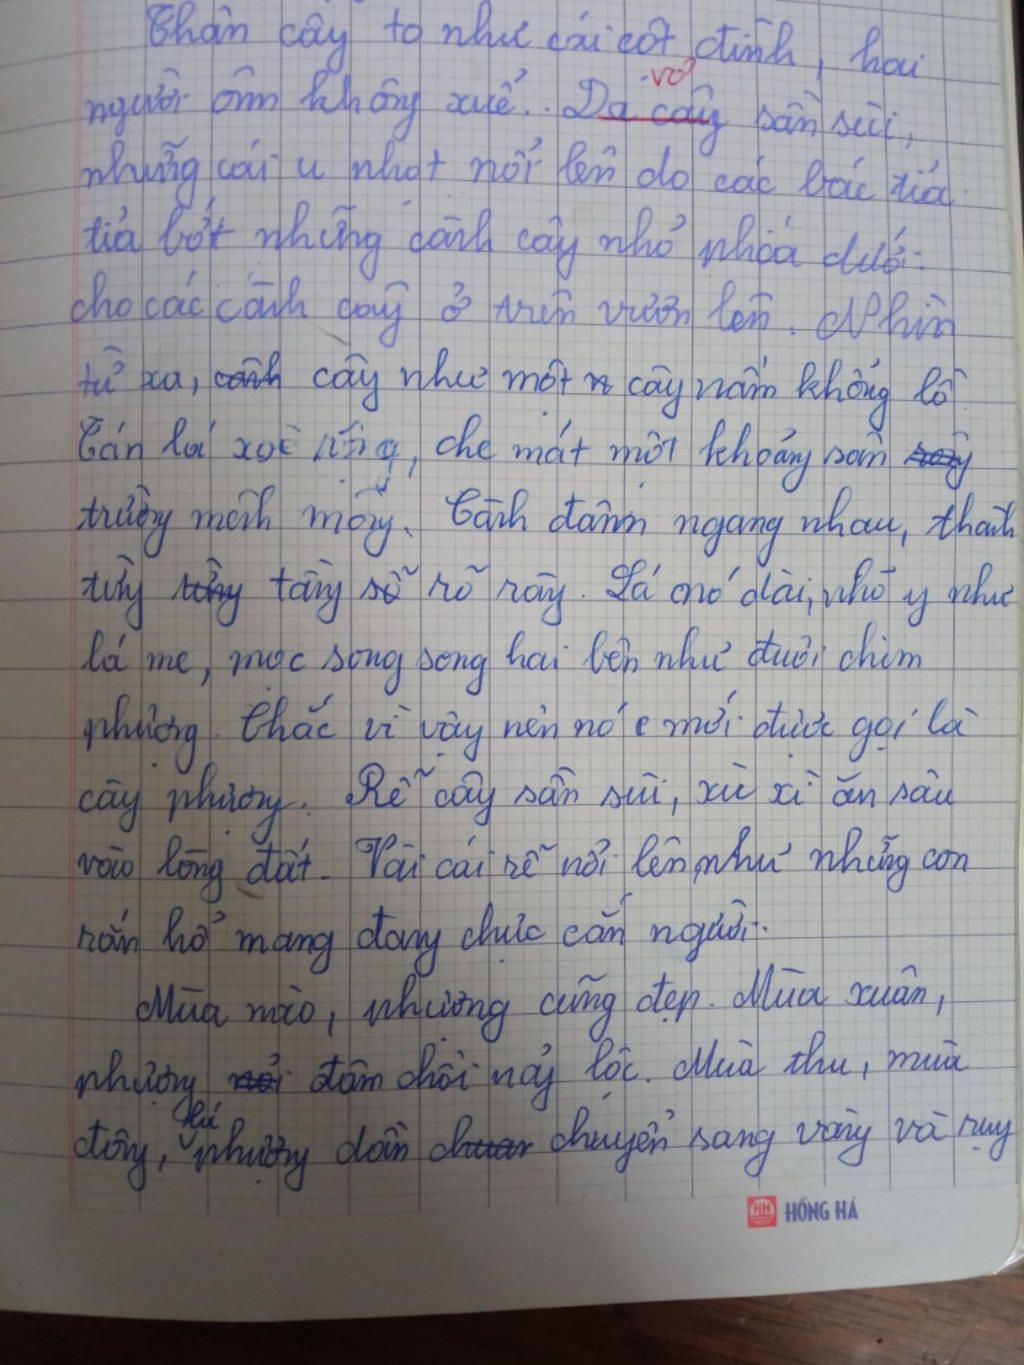 Thân cây to như cái cột đình, hai
người ôm không xuể. Da cây vỏ sần sùi,
những cái u nhọt nổi lên do các bác tỉa
tỉa bớt những cành cây nhỏ phía dưới
cho các cành cây ở trên vươn lên. Nhìn
từ xa, cành cây như một cây nấm khổng lồ
Tán lá xoè rộng, che mát một khoảng sân
trường mênh mông. Cành đâm ngang nhau, thành
từng tầng số rõ ràng. Lá nó dài, nhỏ y như
lá me, mọc song song hai bên như đuôi chim
phượng. Chắc vì vậy nên nó mới được gọi là
cây phượng. Rễ cây sần sùi, xù xì ăn sâu
vào lòng đất. Vài cái rễ nổi lên như những con
rắn hổ mang đang chực cắn người.
Mùa nào, phượng cũng đẹp. Mùa xuân,
phượng nổi đâm chồi nảy lộc. Mùa thu, mùa
đông, lá phượng dần chuyển sang vàng và rụng
HH HỒNG HÀ